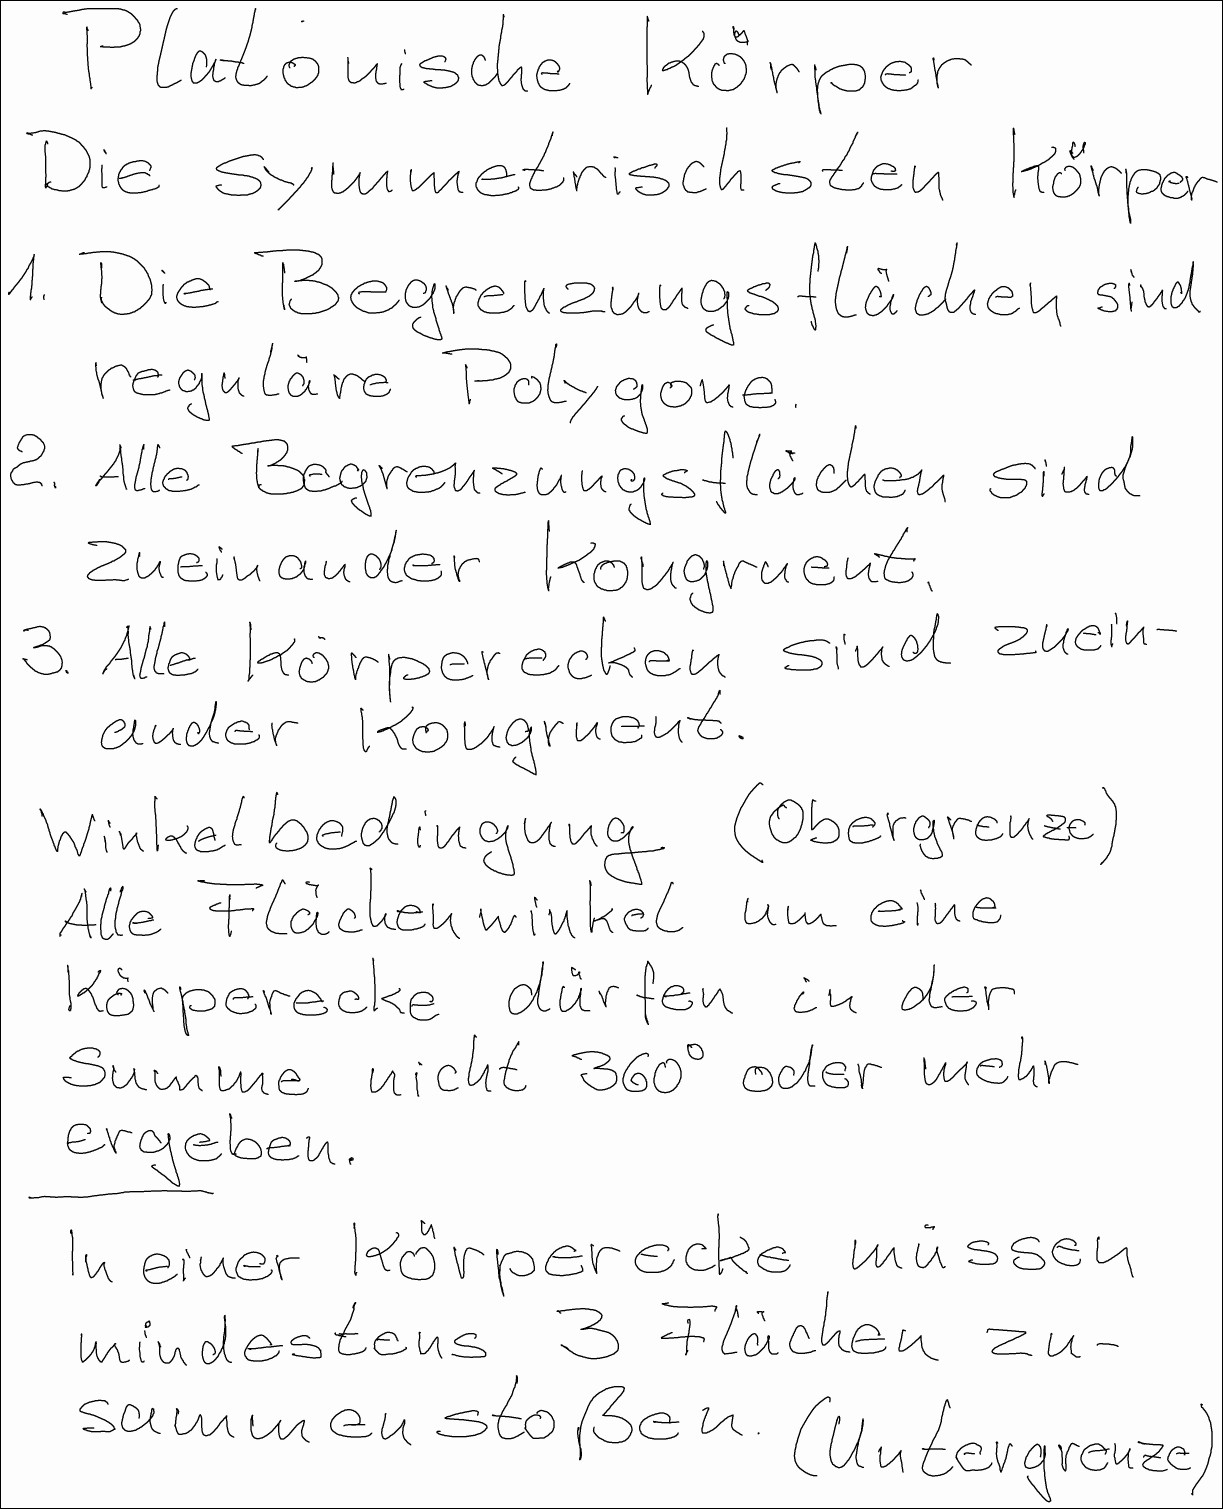 Platonische Körper
Die symmetrischsten Körper
1. Die Begrenzungsflächen sind
reguläre Polygone.
2. Alle Begrenzungsflächen sind
zueinander kongruent.
3. Alle Körperecken sind zuein-
ander kongruent.
Winkelbedingung (Obergrenze)
Alle Flächenwinkel um eine
Körperecke dürfen in der
Summe nicht 360° oder mehr
ergeben.
In einer Körperecke müssen
mindestens 3 Flächen zu-
sammenstoßen. (Untergrenze)